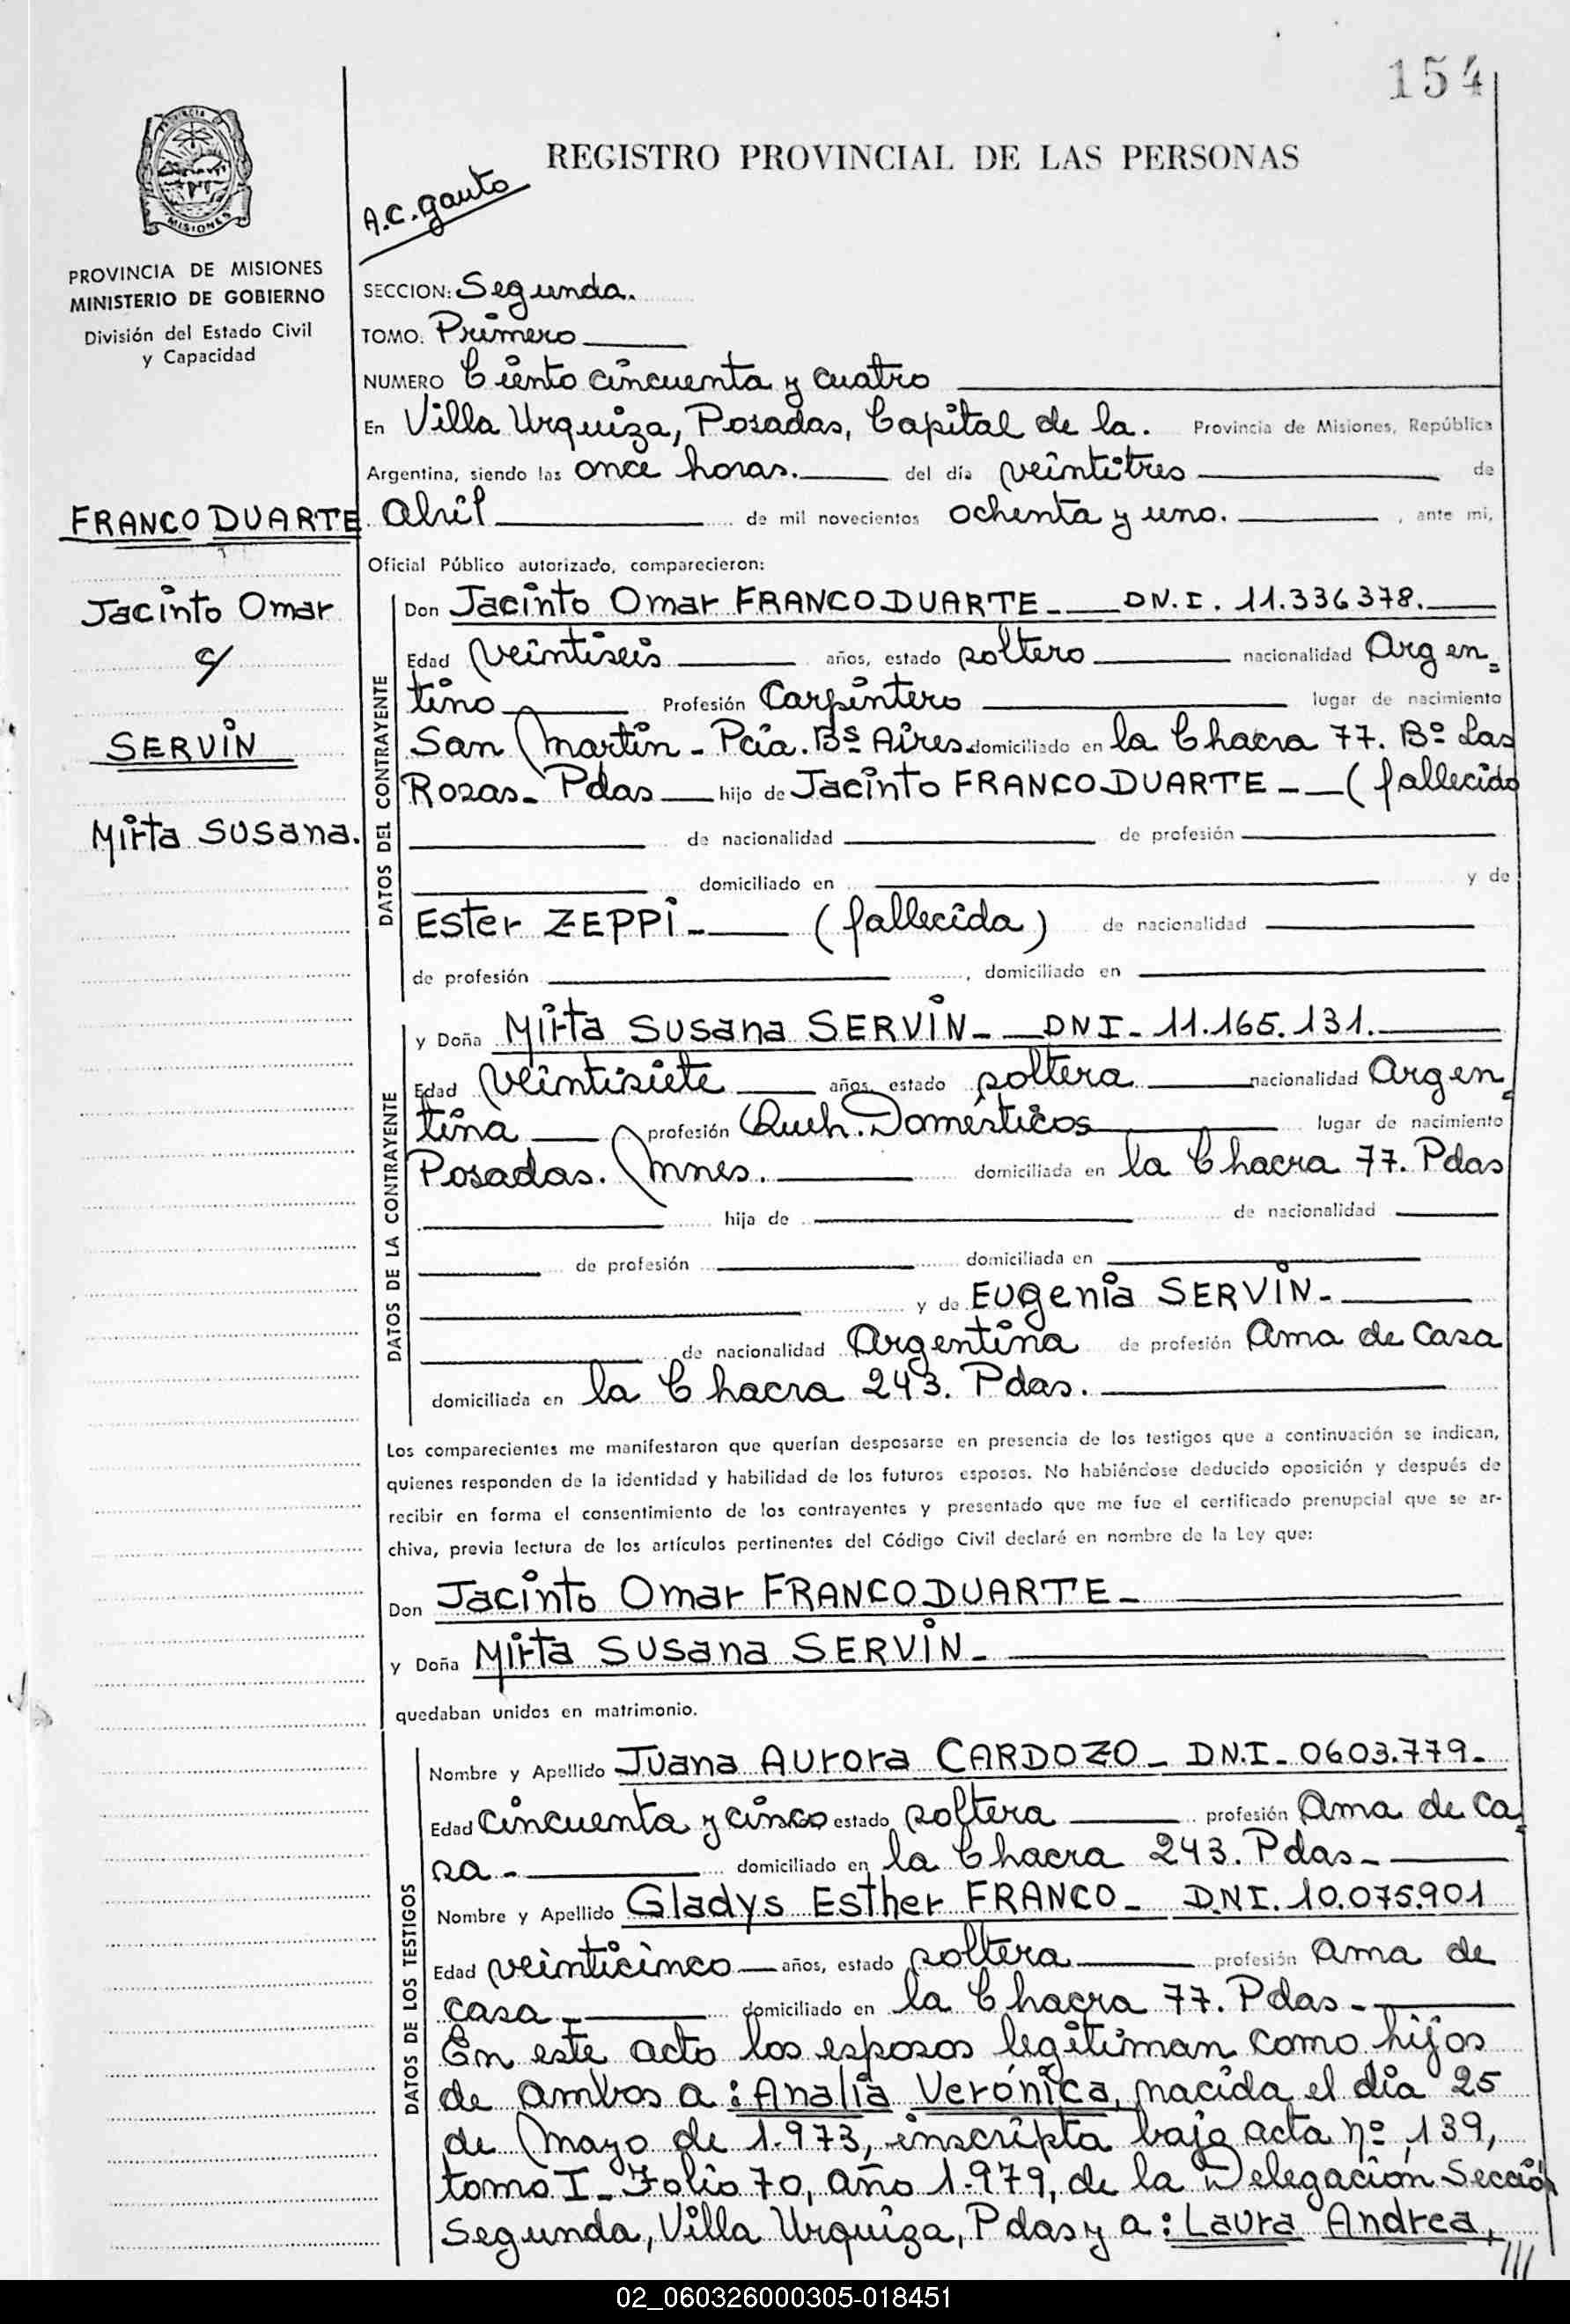 154
REGISTRO PROVINCIAL DE LAS PERSONAS
A.C. Gauto
PROVINCIA DE MISIONES
MINISTERIO DE GOBIERNO
División del Estado Civil
y Capacidad
SECCION: Segunda.
TOMO: Primero
NUMERO Ciento cincuenta y cuatro
En Villa Urquiza, Posadas, Capital de la. Provincia de Misiones, República
Argentina, siendo las once horas. del día veintitres de
Abril de mil novecientos ochenta y uno. , ante mi,
Oficial Público autorizado, comparecieron:
FRANCO DUARTE
Jacinto Omar
c/
SERVIN
Mirta Susana.
DATOS DEL CONTRAYENTE
Don Jacinto Omar FRANCO DUARTE - D.N.I. 11.336378.
Edad veintiseis años, estado soltero nacionalidad Argen=
tino Profesión Carpintero lugar de nacimiento
San Martin - Pcia. Bs Aires domiciliado en la Chacra 77. Bº Las
Rosas - Pdas hijo de Jacinto FRANCO DUARTE - (fallecido
de nacionalidad de profesión
domiciliado en y de
Ester ZEPPI - (fallecida) de nacionalidad
de profesión , domiciliado en
DATOS DE LA CONTRAYENTE
y Doña Mirta Susana SERVIN - DNI - 11.165.131.
Edad veintisiete años, estado soltera nacionalidad Argen=
tina profesión Queh. Domésticos lugar de nacimiento
Posadas. Mnes. domiciliada en la Chacra 77. Pdas
hija de de nacionalidad
de profesión domiciliada en
y de Eugenia SERVIN -
de nacionalidad Argentina de profesión Ama de Casa
domiciliada en la Chacra 243. Pdas.
Los comparecientes me manifestaron que querían desposarse en presencia de los testigos que a continuación se indican,
quienes responden de la identidad y habilidad de los futuros esposos. No habiéndose deducido oposición y después de
recibir en forma el consentimiento de los contrayentes y presentado que me fue el certificado prenupcial que se ar-
chiva, previa lectura de los artículos pertinentes del Código Civil declaré en nombre de la Ley que:
Don Jacinto Omar FRANCO DUARTE -
y Doña Mirta Susana SERVIN -
quedaban unidos en matrimonio.
DATOS DE LOS TESTIGOS
Nombre y Apellido Juana Aurora CARDOZO - D.N.I - 0603.779 -
Edad Cincuenta y cinco estado soltera profesión Ama de Ca=
sa - domiciliado en la Chacra 243. Pdas -
Nombre y Apellido Gladys Esther FRANCO - D.N.I. 10.075.901
Edad veinticinco años, estado soltera profesión Ama de
casa - domiciliado en la Chacra 77. Pdas -
En este acto los esposos legitiman como hijos
de ambos a: Analia Verónica, nacida el día 25
de Mayo de 1.973, inscripta bajo acta nº 139,
tomo I - Folio 70, año 1.979, de la Delegación Sección
Segunda, Villa Urquiza, Pdas y a: Laura Andrea,
///
02_060326000305-018451